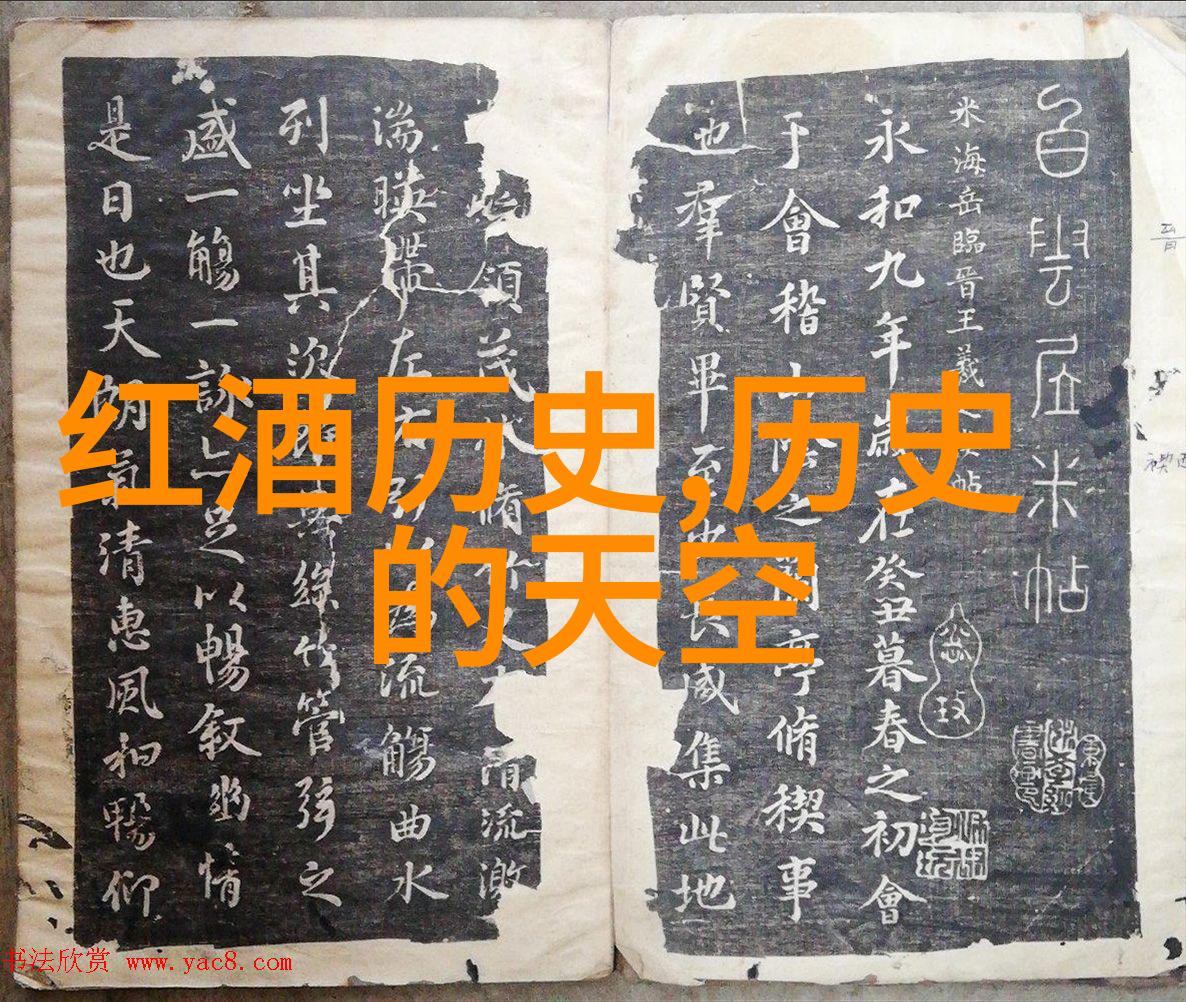 白雲居米帖
米海岳臨晋王羲
帖
永和九年歲在癸丑暮春之初會
于會稽山陰之蘭亭脩稧事
也羣賢畢至少長咸集此地
領茂
脩竹又
清流激
湍暎帶左右引
流觴曲水
列坐其次
絲竹管弦之
盛一觴一詠亦足以暢叙幽情
是日也天朗氣清惠風和暢仰
红酒历史,历史
的天空
书法欣赏 www.yac8.com